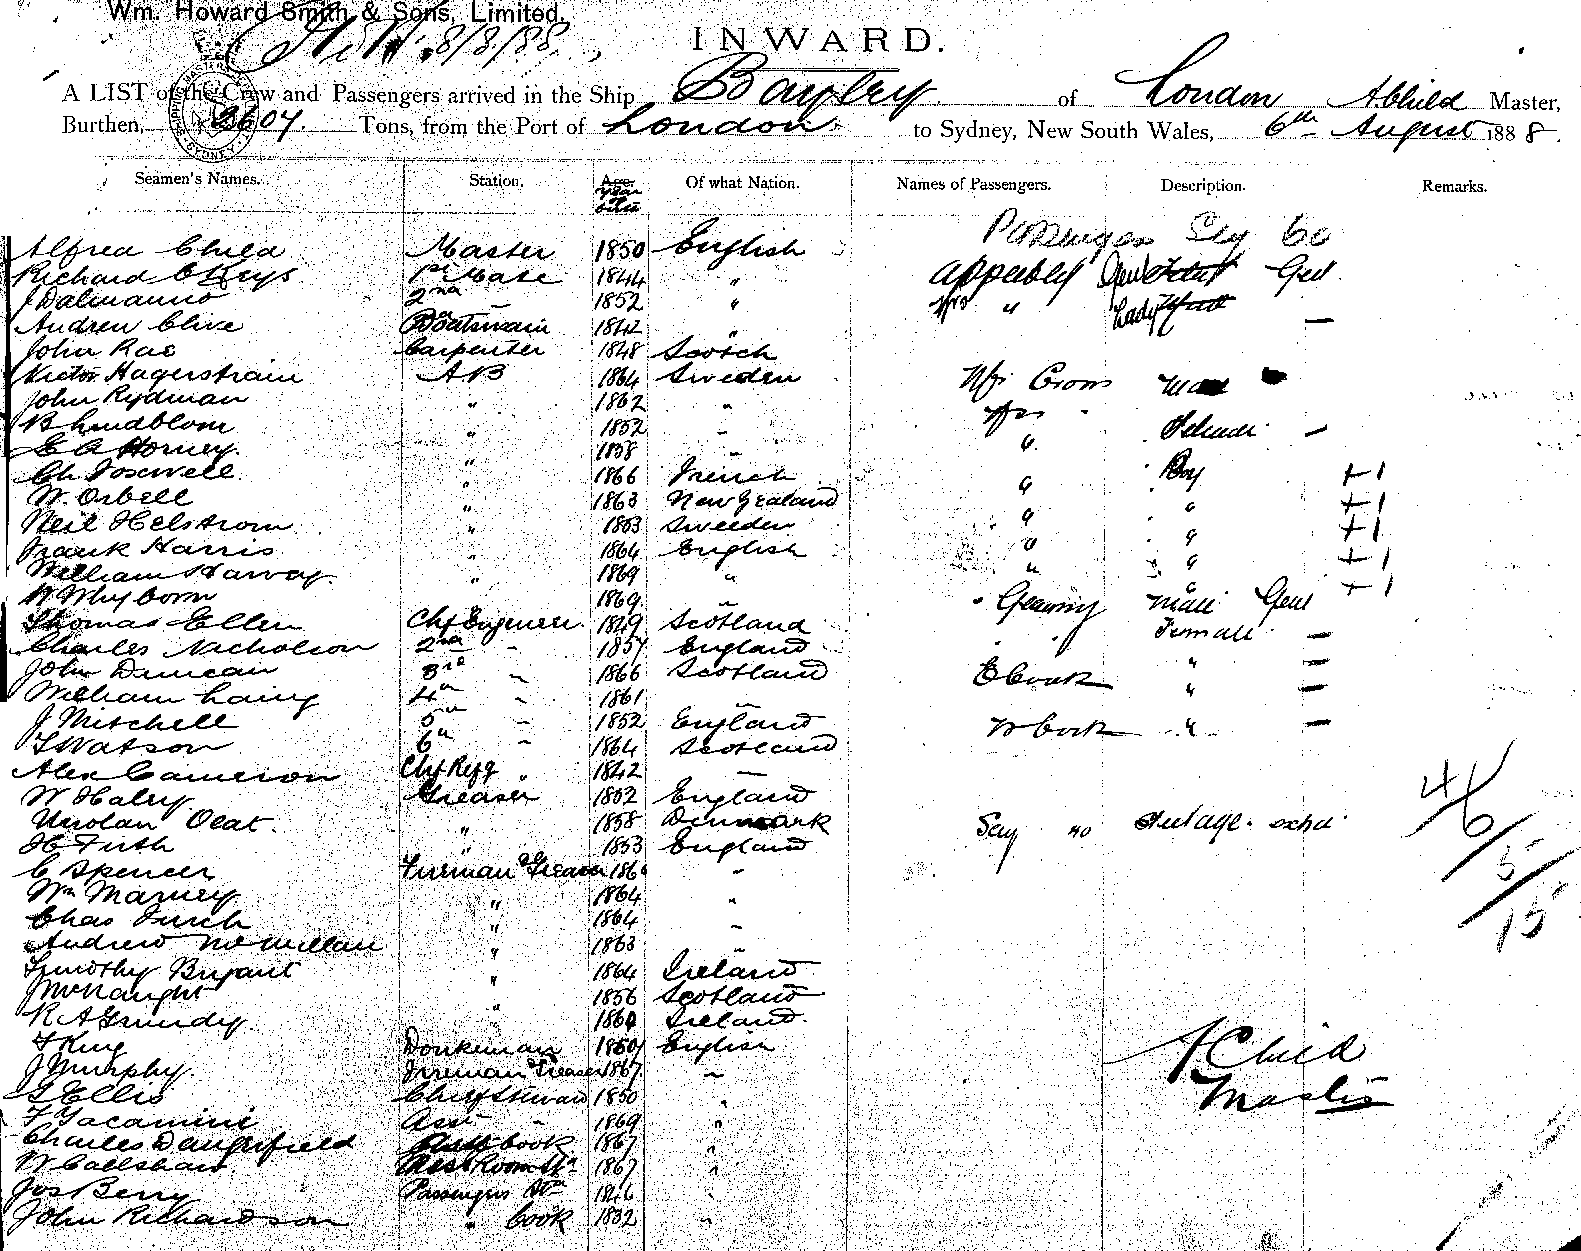 Wm. Howard Smith & Sons, Limited.
8/8/88
INWARD.
A LIST of the Crew and Passengers arrived in the Ship Bayley of London A Child Master,
Burthen, 2607 Tons, from the Port of London to Sydney, New South Wales, 6th August 1888.
Seamen's Names. Station. Age. Of what Nation. Names of Passengers. Description. Remarks.
Alfred Child Master 1850 English
Richard 1st Mate 1844 "
J Dalmanno 2nd - 1852 "
Andrew Clive Boatswain 1842 "
John Rae Carpenter 1848 Scotch
Victor Hagerstrain AB 1864 Sweden
John Rydman " 1862 "
B Lindblom " 1852 "
E A Horney. 1858
Ch Foxwell " 1866 French
W. Orbell " 1863 New Zealand
Neil Helstrom " 1853 Sweeden
Frank Harris " 1864 English
William Harvey " 1869 "
W Whyborn 1869 "
Thomas Ellen Chf Engineer 1849 Scotland
Charles Nicholson 2nd - 1857 England
John Duncan 3rd - 1866 Scotland
William Laing 4th - 1861 "
J Mitchell 5th - 1852 England
T Watson 6th - 1864 Scotland
Alex Cameron Chf Refg " 1842
W Haley Greaser 1852 England
Olat. " 1858 Denmark
H Firth " 1853 England
C Spencer Fireman & Greaser 186 "
Wm Marney " 1864 "
Chas " 1864 "
Andrew McMillan " 1863 "
Timothy Bryant " 1864 Ireland
J McNaught " 1856 Scotland
R A Grundy " 1860 Ireland
F King Donkeman 1860 English
J Murphy. Fireman & Greaser 1867 "
G Ellis Chief Steward 1850 "
F Jacamini Asst " 1869 "
Charles Dangerfield Cook 1867 "
W Callshaw Mess Room St 1867 "
Jos Berry Passengers 1846
John Richardson " Cook 1832 "
Passengers Sey to
Apperbly Gent
Mrs " Lady -
Mr Crows
Mrs "
" Female -
" Boy +1
" " +1
" " +1
" " +1
" " +1
Gearing Male Gent
Female -
E Cook " -
W Cook " -
Say no steerage
46/5/15
A Child
Master